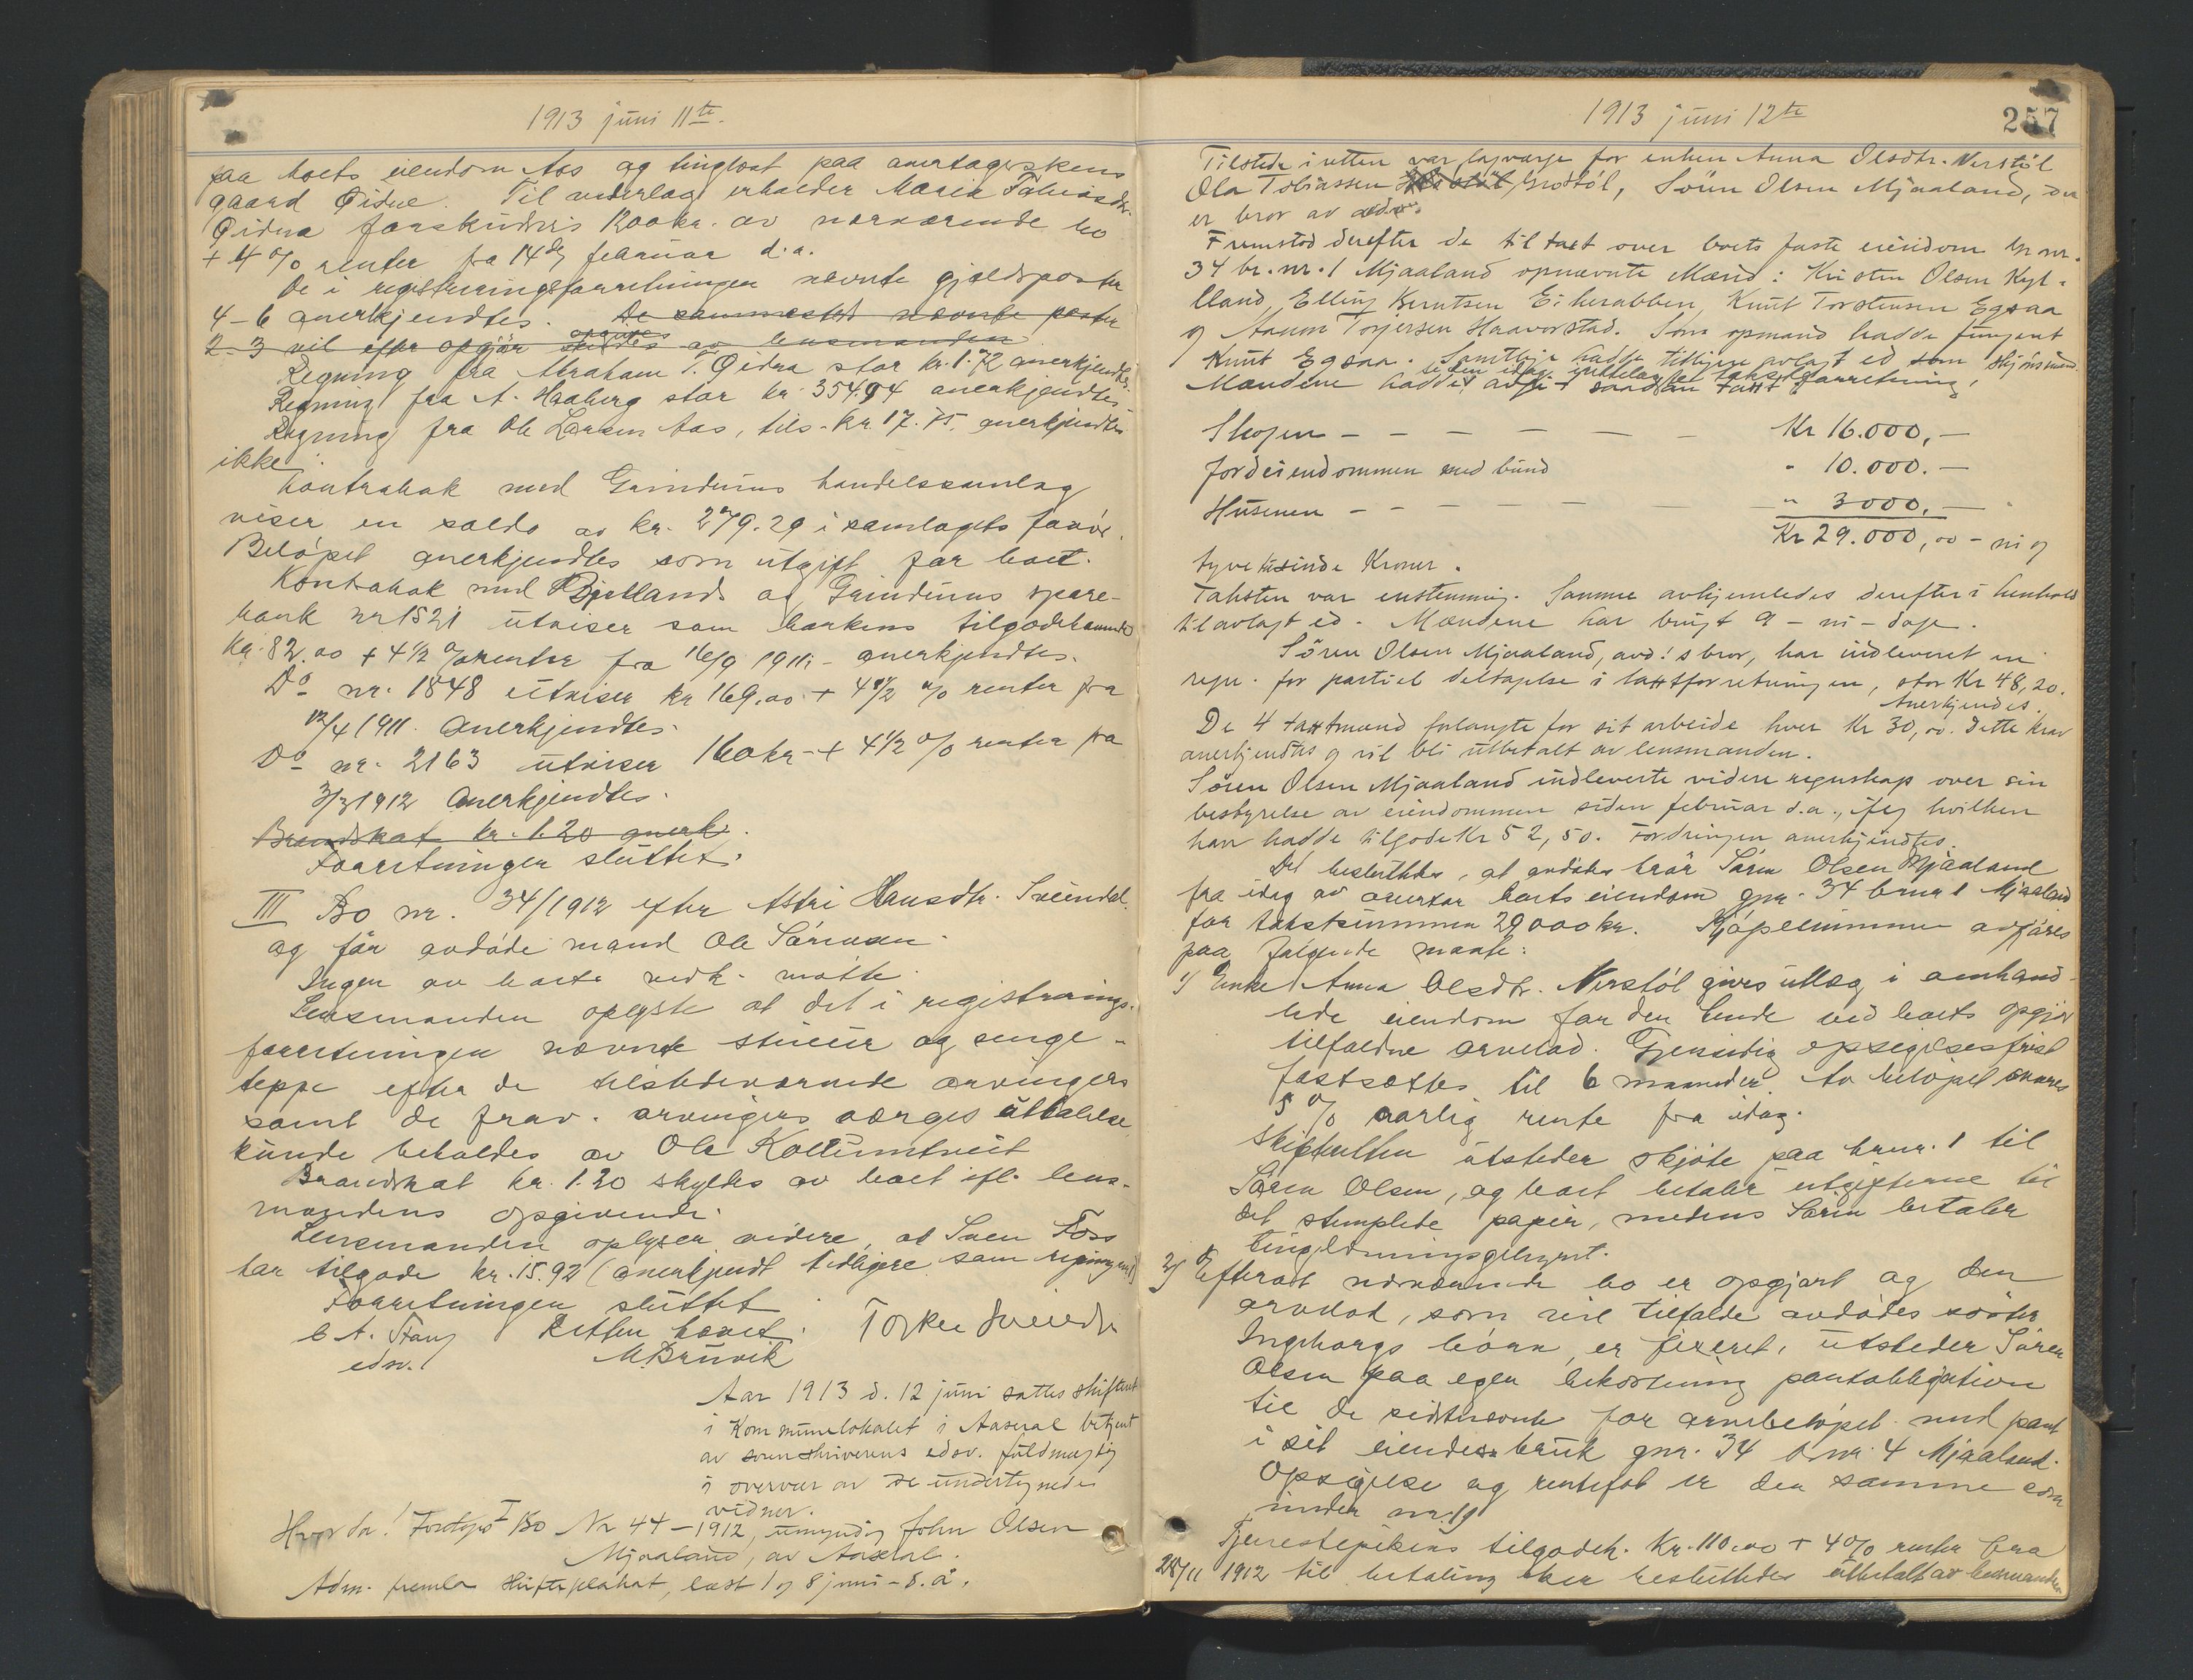 1913 juni 11te.
paa boets eiendom Aas og tinglæst paa overtagerskens
gaard Øidne. Til vederlag erholder Maria Tobiasdtr.
Øidna forskudsvis 1200 kr. av nærværende bo
+ 4 % renter fra 14de februar d.a.
De i registreringsforretningen nævnte gjældsposter
4-6 anerkjendtes. De sammesteds nævnte poster
2-3 vil efter opgjør av lensmanden
Regning fra Abraham T. Øidna stor kr. 1.72 anerkjendtes.
Regning fra A. Haaberg stor kr 354.94 anerkjendtes
Regning fra Ole Larsen Aas, tils. kr. 17.75, anerkjendtes
ikke.
Kontrabok med Grindums handelssamlag
viser en saldo av kr. 279.29 i samlagets favør.
Beløpet anerkjendtes som utgift for boet.
Kontrabok med Bjellands og Grindums spare-
bank nr 1521 utviser som bankens tilgodehavende
Kr. 82.00 + 4 1/2 % renter fra 16/9 1911 - anerkjendtes.
Do nr. 1848 utviser kr 169.00 + 4 1/2 % renter fra
12/4 1911. Anerkjendtes.
Do nr. 2163 utviser 160 kr - + 4 1/2 % renter fra
3/3 1912 Anerkjendtes.
Brandskat kr. 1.20 anerk.
Forretningen sluttet.
III Bo nr. 34/1912 efter Astri Hansdtr. Sveindal
og før avdøde mand Ole Sørensen.
Ingen av boets vedk. møtte.
Lensmanden oplyste at det i registrerings-
forretningen nævnte stueur og senge-
teppe efter de tilstedeværende arvingers
samt de frav. arvingers værges uttalelse
kunde beholdes av Ole Kollumtveit
Brandskat kr. 1.20 skyldes av boet ifl. lens-
mandens opgivende.
Lensmanden oplyser videre, at Sven Foss
har tilgode kr. 15.92 (anerkjendt tidligere som regning)
Forretningen sluttet.
Retten hævet. Torkel Sveindal
C A. Stang
edsv. M. Bruvik
Aar 1913 d. 12 juni sattes skifteret
i Kommunelokalet i Aaseral betjent
av sorenskriverens edsv. fuldmægtig
i overvær av de undertegnede
vidner.
Hvorda! Foretoges I Bo Nr 44-1912, umyndig John Olsen
Mjaaland, av Aaseral.
Adm. fremla skifteplakat, læst 1 og 8 juni - d.a.
1913 juni 12te
257
Tilstede i retten var lagværge for enken Anna Olsdtr. Nerstøl
Ola Tobiassen Grostøl, Søren Olsen Mjaaland, der
er bror av avdøde.
Fremstod derefter de til takst over boets faste eiendom gr nr.
34 br. nr. 1 Mjaaland opnævnte Mænd: Kristen Olsen Kyl-
lland, Elling Berntsen Eikerabben, Knut Torstensen Egsaa
og Aanon Torjersen Haaverstad. Som opmand hadde fungert
Knut Egsaa. Samtlige hadde tidligere avlagt ed som skjønsmænd.
Mændene hadde siden idag avgit saadan takstforretning.
Skogen - - - - - - Kr 16.000,-
Jordeiendommen med bund " 10.000.-
Husenen - - - - - " 3000.-
Kr 29.000,00 - ni og
tyvetusinde Kroner.
Taksten var enstemmig. Samme avhjemledes derefter i henhold
til avlagt ed. Mændene har brugt 9 - ni - dage.
Søren Olsen Mjaaland, avd.'s bror, har indleveret en
regn. for partiel deltagelse i taxtforretningen, stor Kr 48,20.
Anerkjendes.
De 4 taxtmænd forlangte for sit arbeide hver Kr 30,00. Dette krav
anerkjendtes og vil bli utbetalt av lensmanden.
Søren Olsen Mjaaland indleverte videre regnskap over sin
bestyrelse av eiendommen siden februar d.a., ifølg hvilken
han hadde tilgode Kr 52,50. Fordringen anerkjendtes.
Det besluttedes, at avdødes bror Søren Olsen Mjaaland
fra idag av overtar boets eiendom gnr. 34 brnr 1 Mjaaland
for takstsummen 29000 kr. Kjøpesummen avgjøres
paa følgende maate:
1) Enke Anna Olsdtr. Nerstøl gives utlæg i omhand-
lede eiendom for den hende ved boets opgjør
tilfaldne arvelod. Gjensidig opsigelsesfrist
fastsættes til 6 maaneder. Av beløpet svares
5 % aarlig rente fra idag.
Skifteretten utsteder skjøte paa brnr. 1 til
Søren Olsen, og boet betaler utgifterne til
det stemplede papir, medens Søren betaler
tinglæsningsgebyret.
2) Efterat nærværende bo er opgjort og den
arvelod, som vil tilfalde avdødes søster
Ingeborgs børn, er fixeret, utsteder Søren
Olsen paa egen bekostning pantobligation
til de sidstnævnte for arvebeløpet med pant
i sit eiendesbruk gnr. 34 brnr. 4 Mjaaland.
Opsigelse og rentefot er den samme som
under nr. 1)
Tjenestepikens tilgodeh. Kr. 110.00 + 4% renter fra
28/11 1912 til betaling sker besluttedes utbetalt av lensmanden